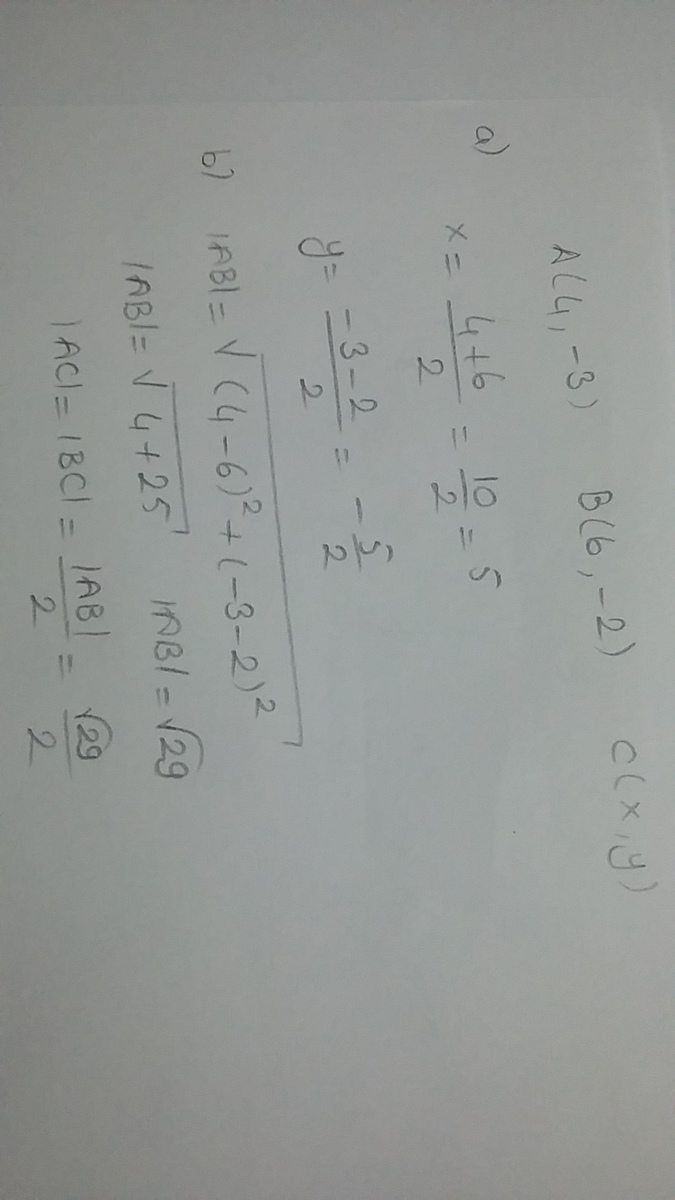 A(4,-3) B(6,-2) C(x,y)
a) x = \frac{4+6}{2} = \frac{10}{2} = 5
y = \frac{-3-2}{2} = -\frac{5}{2}
b) |AB| = √(4-6)² + (-3-2)²
|AB| = √4+25 |AB| = √29
|AC| = |BC| = \frac{|AB|}{2} = \frac{√29}{2}